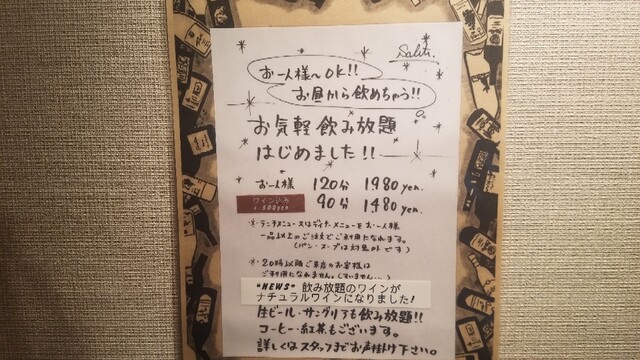 Salut.
お一人様〜OK!!
お昼から飲めちゃう!!
お気軽 飲み放題
はじめました!!
お一人様 120分 1980yen.
ワイン込み
+500yen
90分 1480yen.
※ランチメニュー又はディナーメニューをお一人様
一品以上のご注文でご利用になれます。
(パン・スープは対象外です)
※20時以降ご来店のお客様は
ご利用になれません。(すいません…)
*NEWS* 飲み放題のワインが
ナチュラルワインになりました!
生ビール・サングリアも飲み放題!!
コーヒー・紅茶もございます。
詳しくはスタッフまでお声掛け下さい。